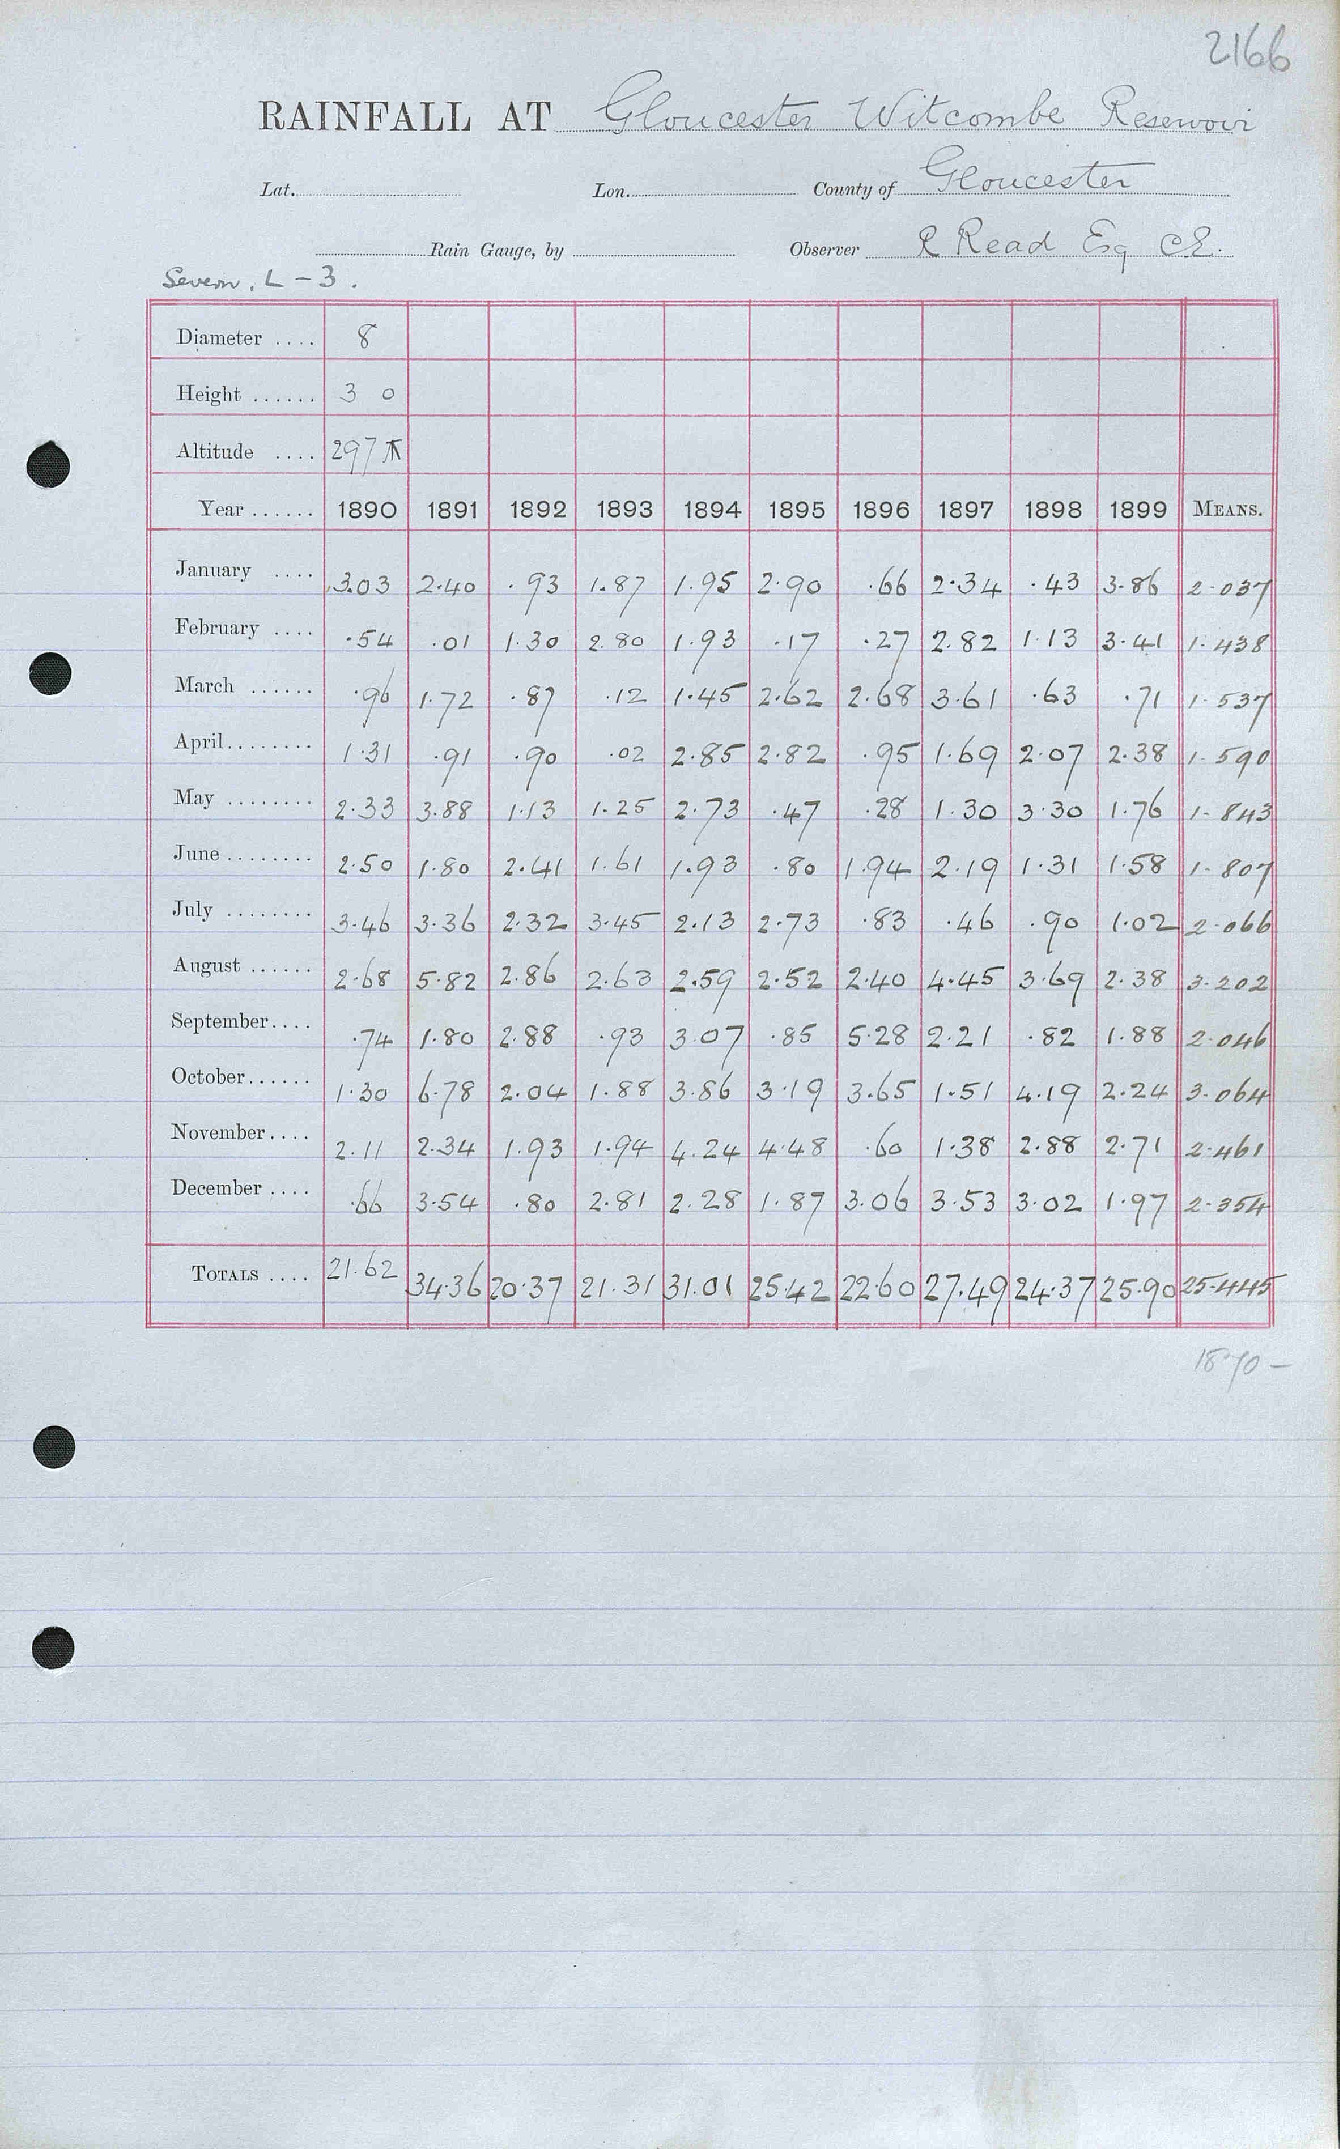 2166
RAINFALL AT Gloucester Witcombe Reservoir
Lat. Lon. County of Gloucester
Rain Gauge, by Observer R Read Esq CE.
Severn. L - 3.
Diameter .... 8
Height ...... 3 0
Altitude .... 297
Year ...... 1890 1891 1892 1893 1894 1895 1896 1897 1898 1899 MEANS.
January .... 3.03 2.40 .93 1.87 1.95 2.90 .66 2.34 .43 3.86 2.037
February .... .54 .01 1.30 2.80 1.93 .17 .27 2.82 1.13 3.41 1.438
March ...... .96 1.72 .87 .12 1.45 2.62 2.68 3.61 .63 .71 1.537
April........ 1.31 .91 .90 .02 2.85 2.82 .95 1.69 2.07 2.38 1.590
May ........ 2.33 3.88 1.13 1.25 2.73 .47 .28 1.30 3.30 1.76 1.843
June ........ 2.50 1.80 2.41 1.61 1.93 .80 1.94 2.19 1.31 1.58 1.807
July ........ 3.46 3.36 2.32 3.45 2.13 2.73 .83 .46 .90 1.02 2.066
August ...... 2.68 5.82 2.86 2.63 2.59 2.52 2.40 4.45 3.69 2.38 3.202
September.... .74 1.80 2.88 .93 3.07 .85 5.28 2.21 .82 1.88 2.046
October...... 1.30 6.78 2.04 1.88 3.86 3.19 3.65 1.51 4.19 2.24 3.064
November.... 2.11 2.34 1.93 1.94 4.24 4.48 .60 1.38 2.88 2.71 2.461
December .... .66 3.54 .80 2.81 2.28 1.87 3.06 3.53 3.02 1.97 2.354
TOTALS .... 21.62 34.36 20.37 21.31 31.01 25.42 22.60 27.49 24.37 25.90 25.445
1870 -